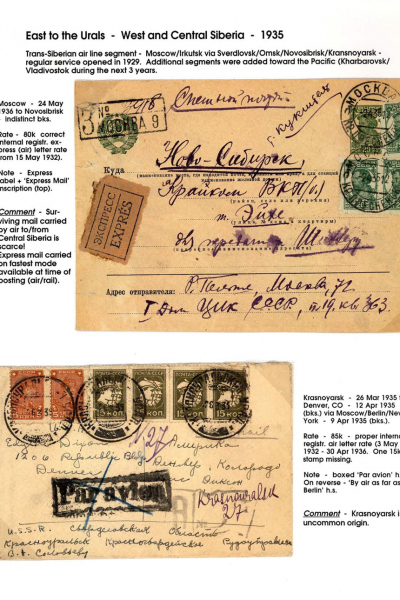 East to the Urals - West and Central Siberia - 1935
Trans-Siberian air line segment - Moscow/Irkutsk via Sverdlovsk/Omsk/Novosibrisk/Kransnoyarsk -
regular service opened in 1929. Additional segments were added toward the Pacific (Kharbarovsk/
Vladivostok during the next 3 years.
Moscow - 24 May
1936 to Novosibrisk
- indistinct bks.
Rate - 80k correct
internal registr. ex-
press (air) letter rate
from 15 May 1932).
Note - Express
label + 'Express Mail'
inscription (top).
Comment - Sur-
viving mail carried
by air to/from
Central Siberia is
scarce!
Express mail carried
on fastest mode
available at time of
posting (air/rail).
З №
МОСКВА 9
МОСКВА
Куда
Ново-Сибирск
Крайком ВКП(б)
т. Эйхе
ЭКСПРЕСС
EXPRÈS
для передачи
Адрес отправителя:
Москва, 72
Дом ЦИК СССР, п.19, кв. 363.
15 КОП 15 КОП
Par avion
1206 Republic Bldg
Денвер, Колорадо
Америка
Красноуральск
27
U.S.S.R. Свердловская Область
Красноуральск Красногвардейское
В. А. Соловьеву
Krasnoyarsk - 26 Mar 1935 to
Denver, CO - 12 Apr 1935
(bks.) via Moscow/Berlin/New
York - 9 Apr 1935 (bks.).
Rate - 85k - proper internal
registr. air letter rate (3 May
1932 - 30 Apr 1936. One 15k
stamp missing.
Note - boxed 'Par avion' h.s.
On reverse - 'By air as far as
Berlin' h.s.
Comment - Krasnoyarsk is
uncommon origin.